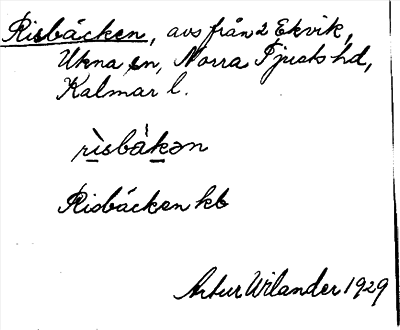 Risbäcken, avs från 2 Ekvik,
Ukna sn, Norra Tjusts hd,
Kalmar l.
rìsbä̀kən
Risbäcken kb
Artur Wilander 1929